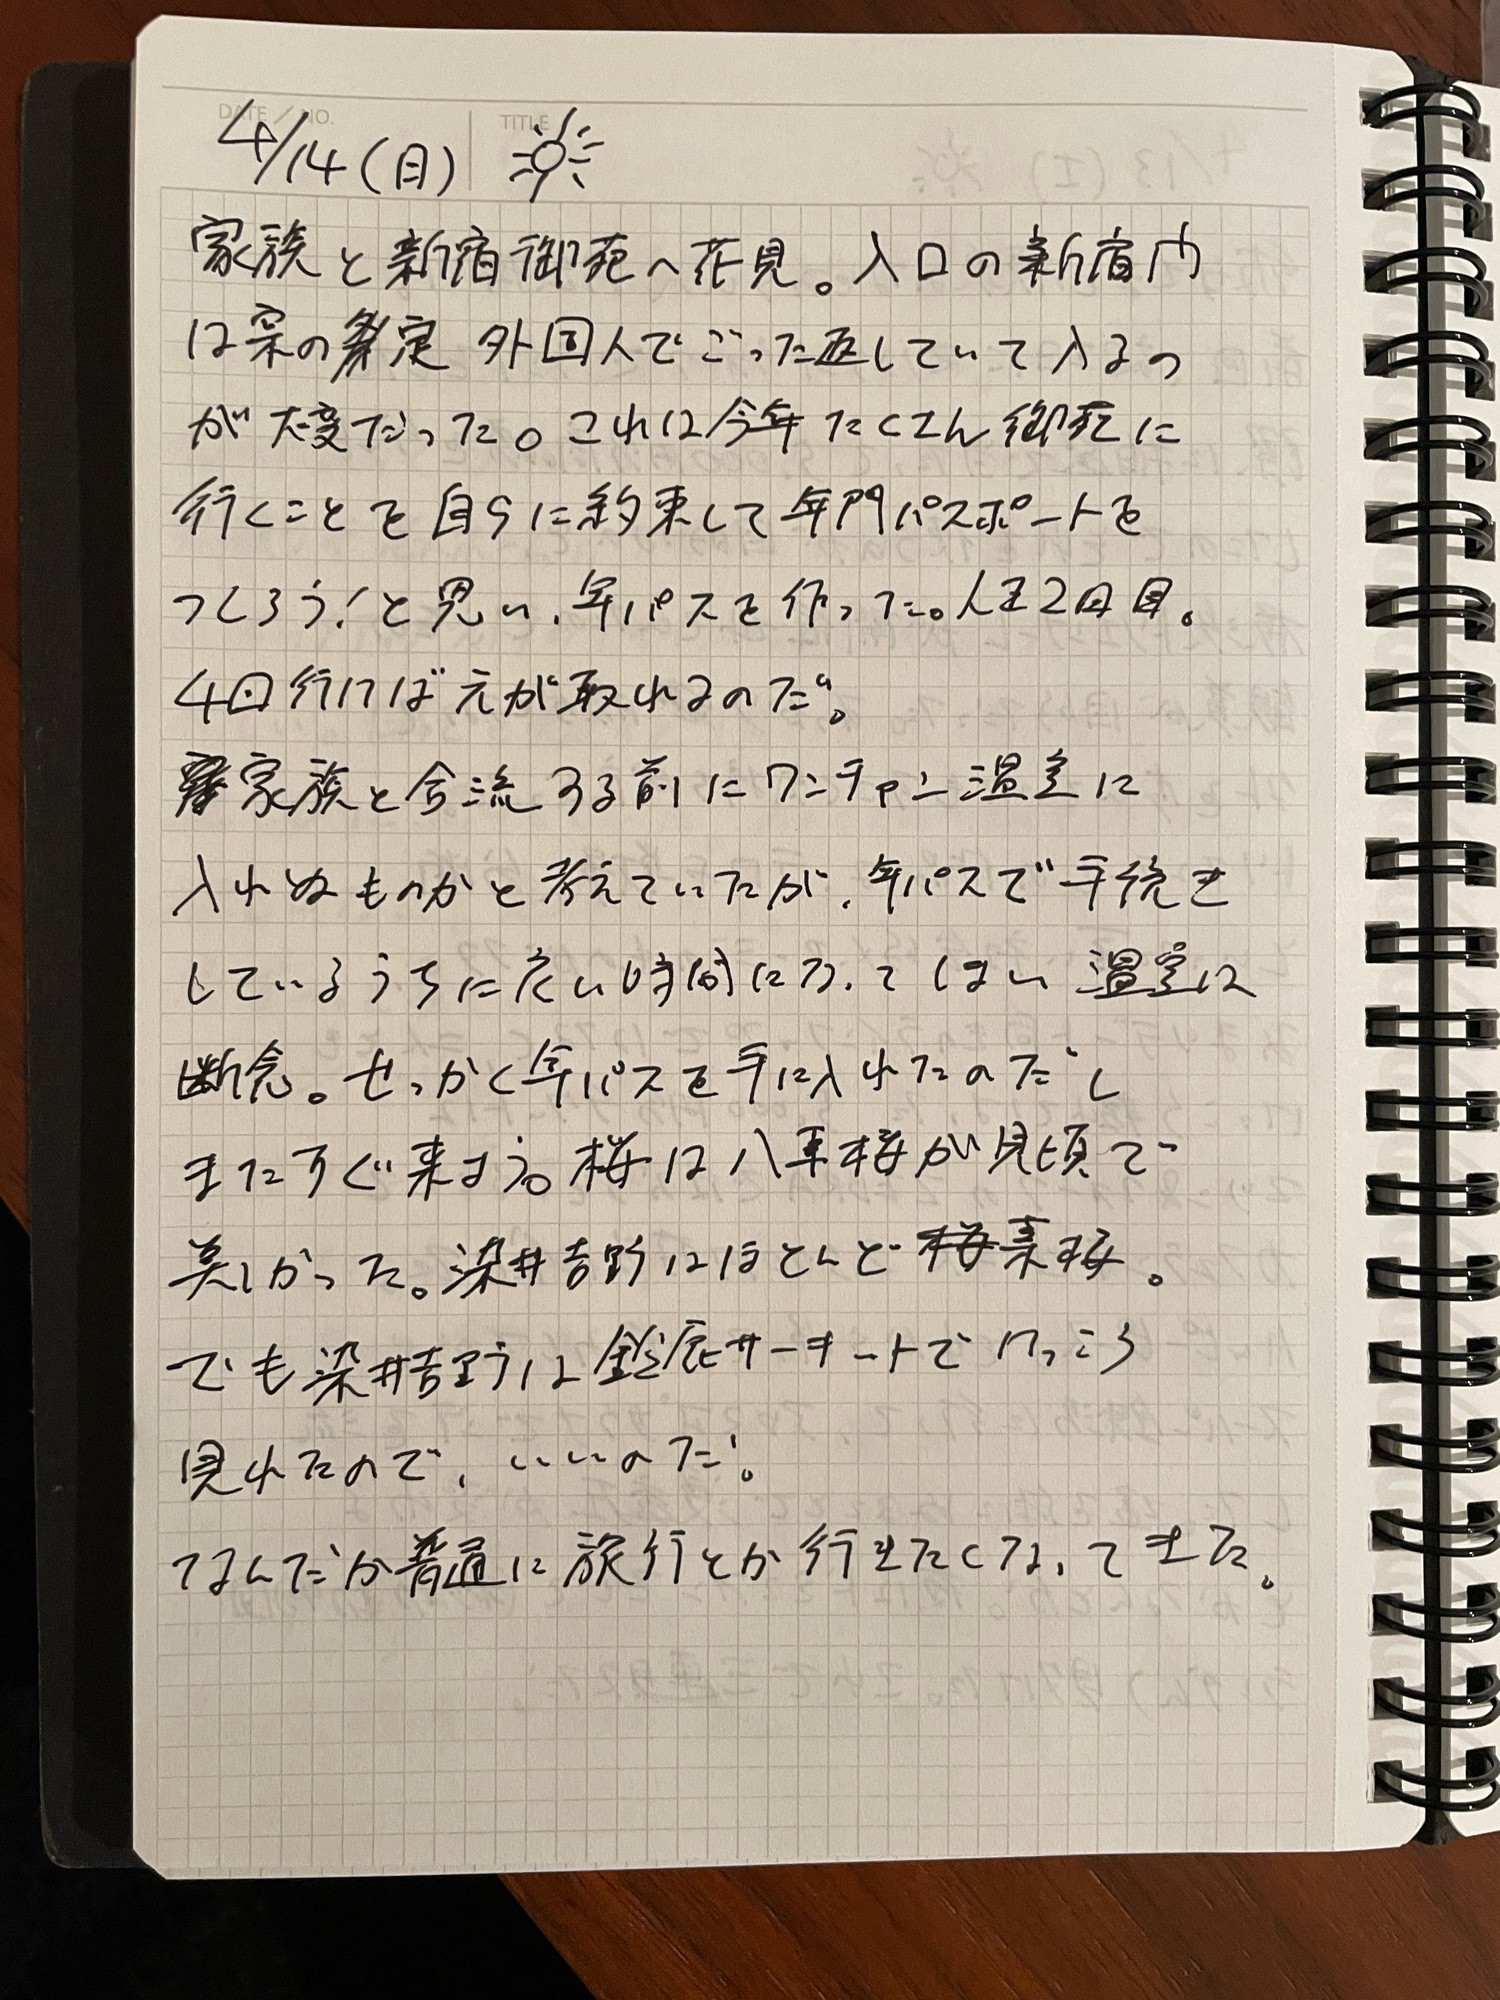 DATE / NO.
TITLE
4/14(日)
家族と新宿御苑へ花見。入口の新宿門
は案の定 外国人でごった返していて入るの
が大変だった。これは今年たくさん御苑に
行くことを自らに約束して年間パスポートを
つくろう!と思い、年パスを作った。人生2回目。
4回行けば元が取れるのだ。
家族と合流する前にワンチャン温室に
入れぬものかと考えていたが、年パスで手続き
しているうちに良い時間になってしまい温室は
断念。せっかく年パスを手に入れたのだし
またすぐ来よう。桜は八重桜が見頃で
美しかった。染井吉野はほとんど葉桜。
でも染井吉野は鈴鹿サーキットでけっこう
見れたので、いいのだ。
なんだか普通に旅行とか行きたくなってきた。